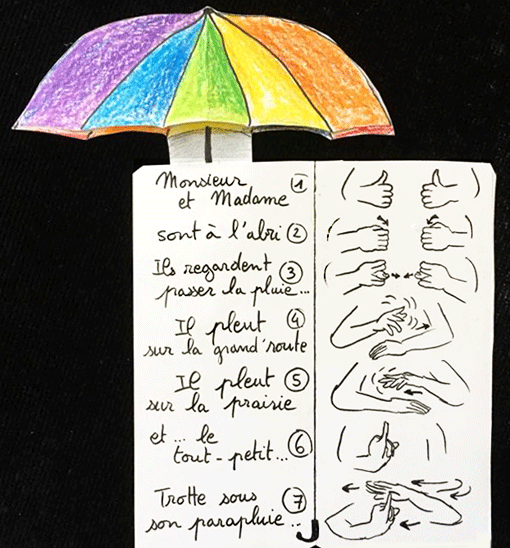 Monsieur 1
et Madame
sont à l'abri 2
Ils regardent 3
passer la pluie...
Il pleut 4
sur la grand'route
Il pleut 5
sur la praisie
et... le 6
tout-petit...
Trotte sous 7
son parapluie...